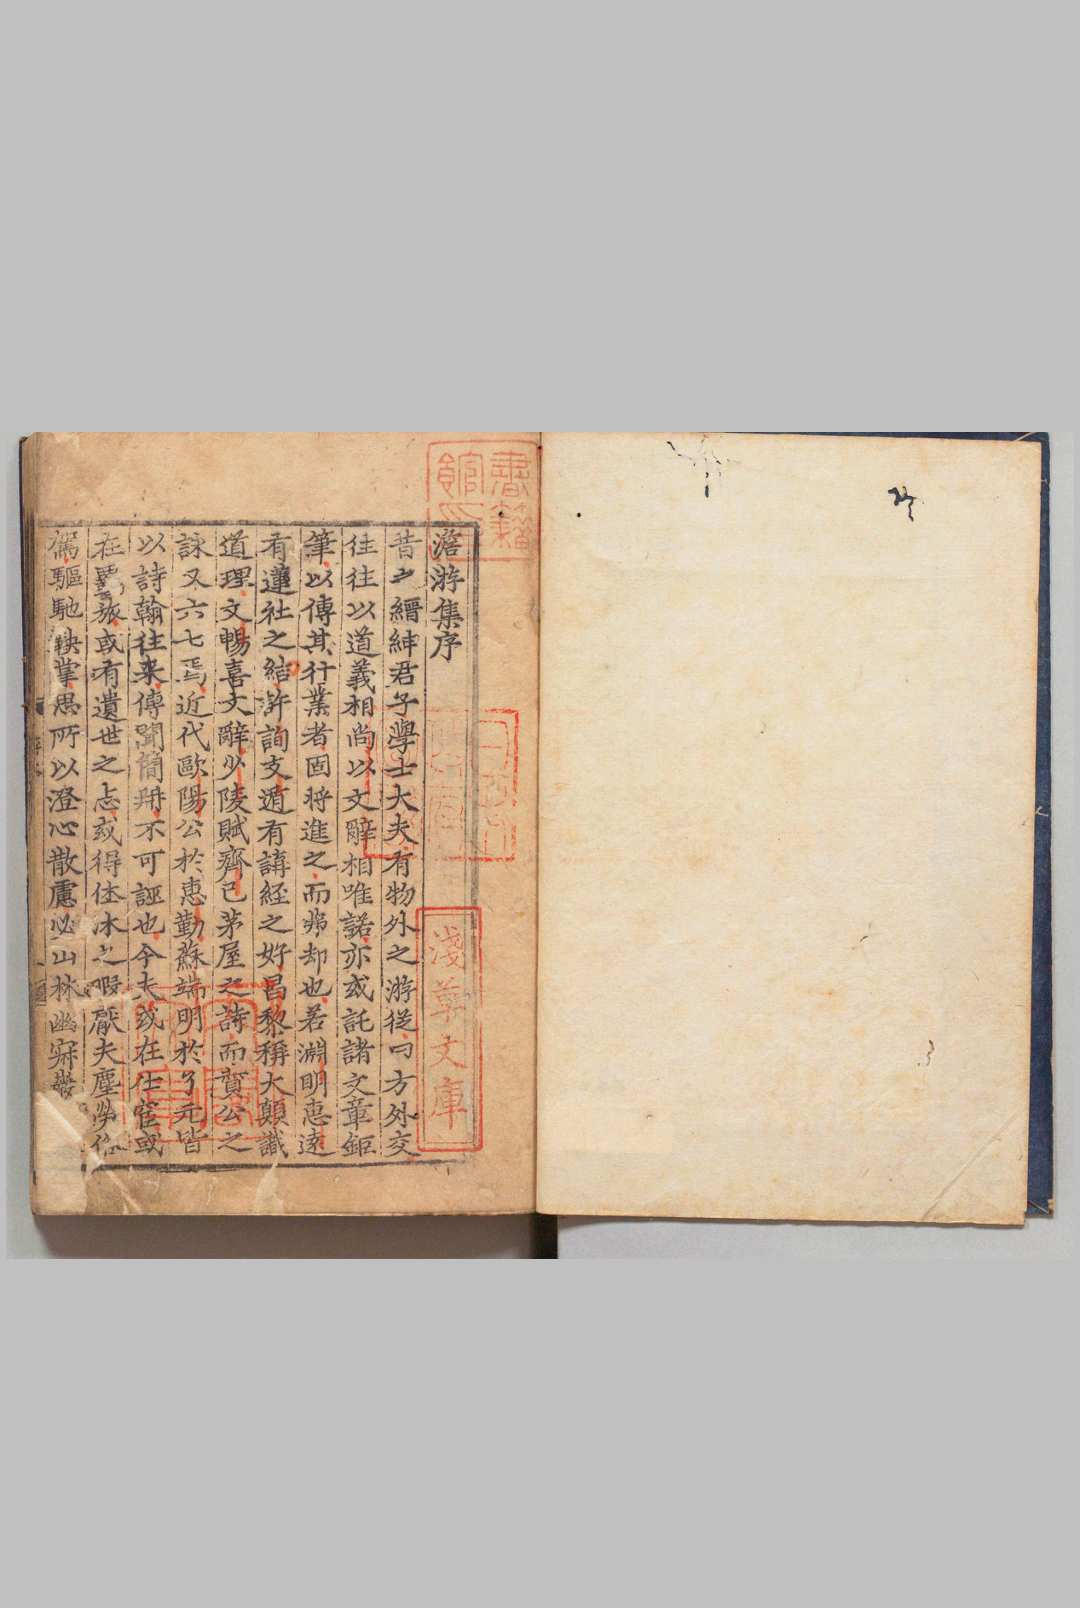 澹游集序
昔之縉紳君子學士大夫有物外之游從曰方外交
往往以道義相尚以文辭相唯諾亦或託諸文章鉅
筆以傳其行業者固將進之而弗却也若淵明惠遠
有蓮社之結許詢支遁有講經之好昌黎稱大顛識
道理文暢喜文辭少陵賦齊己茅屋之詩而贊公之
詠又六七焉近代歐陽公於惠勤蘇端明於了元皆
以詩翰往来傳聞簡冊不可誣也今夫或在仕宦或
在羈旅或有遺世之志或得休沐之暇厭夫塵勞俗
駕驅馳鞅掌思所以澄心散慮必山林幽寂
書籍
館印
淺草文庫